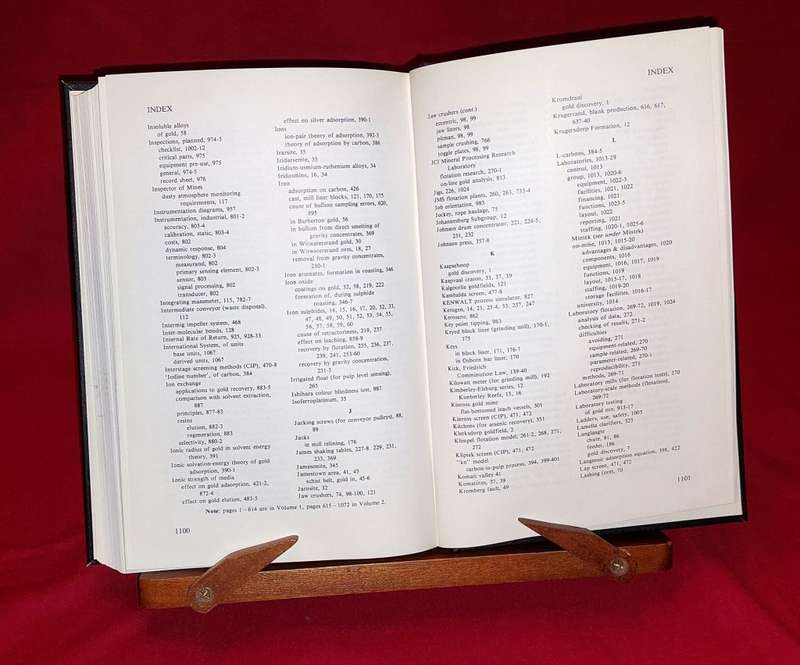 INDEX
Insoluble alloys
of gold, 58
Inspections, planned, 974-5
checklist, 1002-12
critical parts, 975
equipment pre-use, 975
general, 974-5
record sheet, 976
Inspector of Mines
dusty atmosphere monitoring
requirements, 117
Instrumentation diagrams, 957
Instrumentation, industrial, 801-2
accuracy, 803-4
calibration, static, 803-4
costs, 802
dynamic response, 804
terminology, 802-3
measurand, 802
primary sensing element, 802-3
sensor, 803
signal processing, 802
transducer, 802
Integrating manometer, 115, 782-7
Intermediate conveyor (waste disposal),
112
Intermig impeller system, 468
Inter-molecular bonds, 128
Internal Rate of Return, 925, 928-33
International System, of units
base units, 1067
derived units, 1067
Interstage screening methods (CIP), 470-8
'Iodine number', of carbon, 384
Ion exchange
applications to gold recovery, 883-5
comparison with solvent extraction,
887
principles, 877-83
resins
elution, 882-3
regeneration, 883
selectivity, 880-2
Ionic radius of gold in solvent energy
theory, 391
Ionic solvation-energy theory of gold
adsorption, 390-1
Ionic strength of media
effect on gold adsorption, 421-2,
872-4
effect on gold elution, 483-5
effect on silver adsorption, 390-1
Ions
ion-pair theory of adsorption, 392-3
theory of adsorption by carbon, 386
Irarsite, 35
Iridarsenite, 35
Iridium-osmium-ruthenium alloys, 34
Iridosmins, 16, 34
Iron
adsorption on carbon, 426
cast, mill liner blocks, 121, 170, 175
cause of bullion sampling errors, 620,
595
in Barberton gold, 56
in bullion from direct smelting of
gravity concentrates, 369
in Witwatersrand gold, 30
in Witwatersrand ores, 18, 27
removal from gravity concentrates,
Iron arsenates, formation in roasting, 346
Iron oxide
coatings on gold, 53, 58, 219, 222
formation of, during sulphide
roasting, 346-7
Iron sulphides, 14, 15, 16, 17, 20, 32, 33,
47, 48, 49, 50, 51, 52, 53, 54, 55,
56, 57, 58, 59, 60
cause of refractoriness, 219, 237
effect on leaching, 858-9
recovery by flotation, 235, 236, 237,
239, 241, 253-60
recovery by gravity concentration,
231-3
Irrigated float (for pulp level sensing),
265
Ishihara colour blindness test, 987
Isoferroplatinum, 35
J
Jacking screws (for conveyor pulleys), 88,
89
Jacks
in mill relining, 176
James shaking tables, 227-8, 229, 231,
233, 369
Jamesonite, 345
Jamestown area, 41, 43
schist belt, gold in, 45-6
Jarosite, 32
Jaw crushers, 74, 98-100, 121
Note: pages 1-614 are in Volume 1, pages 615-1072 in Volume 2.
1100
INDEX
Jaw crushers (cont.)
eccentric, 98, 99
jaw liners, 98
pitman, 98, 99
sample crushing, 766
toggle plates, 98, 99
JCI Mineral Processing Research
Laboratory
flotation research, 270-1
on-line gold analysis, 813
Jigs, 226, 1024
JMS flotation plants, 260, 263, 733-4
Job orientation, 983
Jockey, rope haulage, 75
Johannesburg Subgroup, 12
Johnson drum concentrator, 221, 224-5,
231, 232
Johnson press, 357-8
K
Kaapsehoop
gold discovery, 1
Kaapvaal craton, 35, 37, 39
Kalgoorlie goldfields, 121
Kambalda screen, 477-8
KENWALT process simulator, 827
Kerogen, 14, 21, 23-4, 33, 237, 247
Kerosene, 862
Key point tipping, 983
Keyed block liner (grinding mill), 170-1,
175
Keys
in block liner, 171, 176-7
in Osborn bar liner, 170
Kick, Friedrich
Comminution Law, 139-40
Kilowatt meter (for grinding mill), 192
Kimberley-Elsburg series, 12
Kimberley Reefs, 13, 16
Kinross gold mine
flat-bottomed leach vessels, 301
Kleroos screen (CIP), 471, 472
Kitchens (for arsenic recovery), 351
Klerksdorp goldfield, 2
Klimpel flotation model, 261-2, 268, 271,
272
Kliptek screen (CIP), 471, 472
"kn" model
carbon-in-pulp process, 394, 399-401
Komati valley 41
Komatiites, 37, 39
Kromberg fault, 49
Kromdraai
gold discovery, 1
Krugerrand, blank production, 616, 617,
637-40
Krugersdorp Formation, 12
L
L-carbons, 384-5
Laboratories, 1013-29
control, 1013
group, 1013, 1020-6
equipment, 1022-3
facilities, 1021, 1022
financing, 1021
functions, 1023-5
layout, 1022
reporting, 1021
staffing, 1020-1, 1025-6
Mintek (see under Mintek)
on-mine, 1013, 1015-20
advantages & disadvantages, 1020
components, 1016
equipment, 1016, 1017, 1019
functions, 1019
layout, 1015-17, 1018
staffing, 1019-20
storage facilities, 1016-17
university, 1014
Laboratory flotation, 269-72, 1019, 1024
analysis of data, 272
checking of results, 271-2
difficulties
avoiding, 271
equipment-related, 270
sample-related, 269-70
parameter-related, 270-1
reproducibility, 271
methods, 269-71
Laboratory mills (for flotation tests), 270
Laboratory-scale methods (flotation),
269-72
Laboratory testing
of gold ore, 915-17
Ladders, use, safety, 1005
Lamella clarifiers, 325
Langlaagte
chute, 81, 86
feeder, 186
gold discovery, 7
Langmuir adsorption equation, 398, 422
Lap screen, 471, 472
Lashing (ore), 70
1101